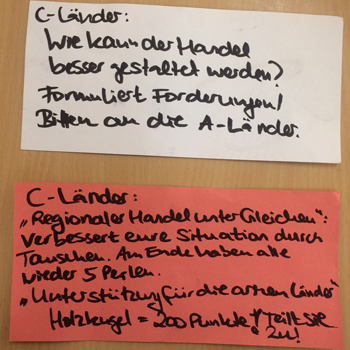 C-Länder:
Wie kann der Handel
besser gestaltet werden?
Formuliert Forderungen/
Bitten an die A-Länder.
C-Länder:
„Regionaler Handel unter Gleichen":
Verbessert eure Situation durch
Tauschen. Am Ende haben alle
wieder 5 Perlen.
„Unterstützung für die armen Länder"
Holzkugel = 200 Punkte! Teilt sie
zu!